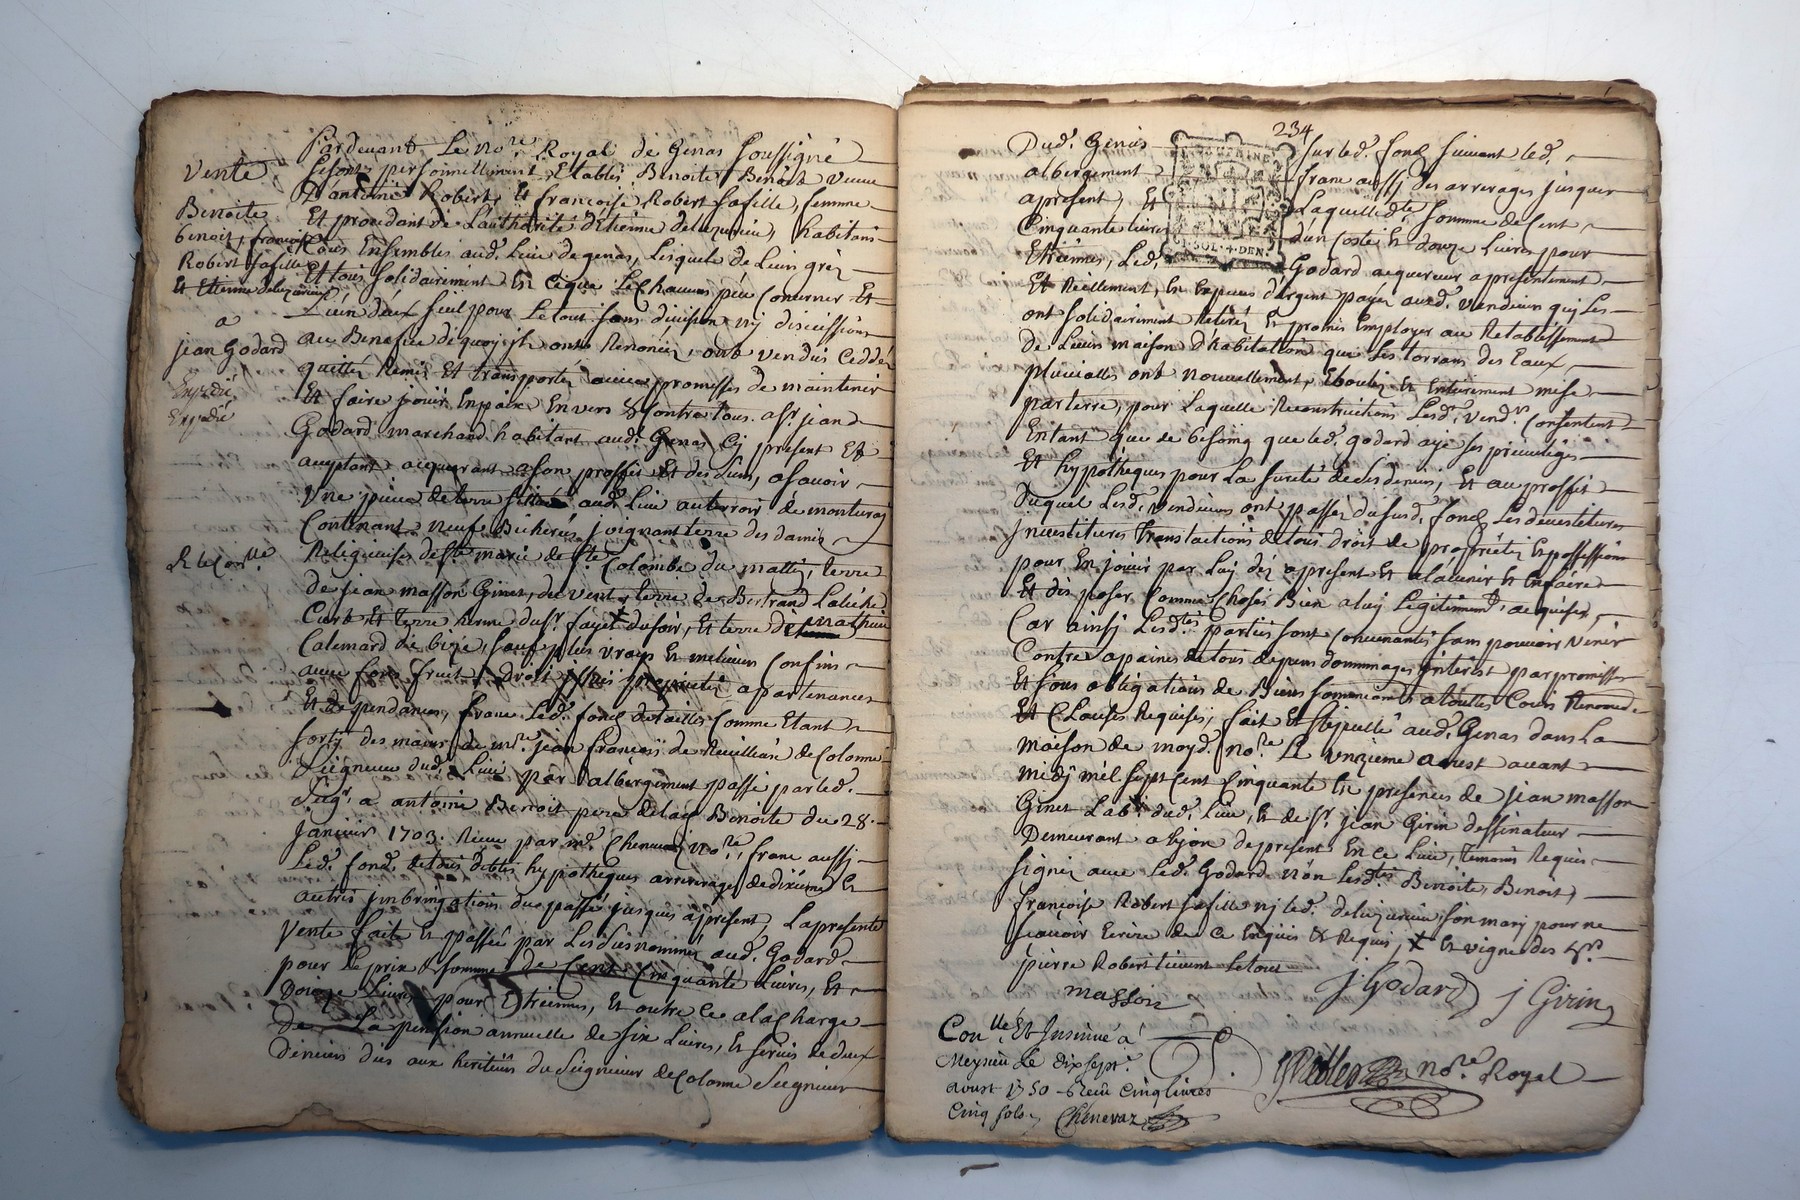 Vente
Benoite
benoit, françoise
Robert sa fille
Et Etienne delezurieu
a
jean Godard
Expedié
Expedié
R le Con.lle
Pardevant Le no.re Royal de Genas soussigné
se sont personnellement Etablis Benoite Benoit veuve
D'antoine Robert, Et françoise Robert sa fille, femme
Et procedant de L'authorité d'Etienne delezurieu, habitans
tous Ensembles aud. Lieu de genas, Lesquels de Leurs gréz
Et tous solidairement En ce que Le Chacun peu Concerner Et
L'un d'eux seul pour Le tout sans division nij discussions
au Benefice de quoy ils ont Renoncéz, ont vendus Ceddéz
quittéz Remis Et transportéz avec promesses de maintenir
Et faire joüir En paix Envers & Contre tous. a s.r jean
Godard marchand habitant aud. Genas Cy present Et
acceptant acquerant a son proffit Et des siens, a sçavoir
Une piece de terre aud. Lieu au terroir de monturaj
Contenant neuf Bicherés, joignant terre des dames
Religieuses de S.te marie de S.te Colombe du mattin, terre
de jean masson Ginet, du vent, terre de Bertrand
Et terre herme du s.r fayet du soir, Et terre de
Calemard de bize, sauf plus vrays Et meilleurs Confins
avec fons fruit Droit proprietéz apartenances
Et dependances, franc Led. fond de tailles Comme Etant
sorty des mains de m.re jean françois de Revilliasc de Colonne
Seigneur dud. Lieu par albergement passé par led.
Seig.r a antoine Benoit pere de lad. Benoite du 28.
janvier 1703. Receu par m.e Chenevaz no.re, franc aussj
Led. fond. de tous debtes hypotheques arrerages de dixiemes Et
autres jmbringations du passé jusques apresent, La presente
Vente faite Et passée par Les susnommés aud. Godard
pour Le prix & somme de Cent Cinquante Livres, Et
Douze Livres pour Etreinnes, Et outre ce a la charge
de La pension annuelle de six Livres, Et servis de deux
deniers dus aux heritiers du Seigneur de Colonne Seigneur
234
Dud. Genas sur led. fond suivant led.
albergement franc aussj des arrerages jusques
apresent, Et Laquelle d.te somme de Cent
Cinquante livres d'un Costé Et douze Livres pour
Etreinnes, Led. Godard acquereur a presentement
Et Réellement, En Especes d'argent payéz auxd. Vendeurs quj Les
ont solidairement Retiréz Et promis Employer au Retablissement
de Leurs maison d'habitation que Les torrans des Eaux
pluvialles ont nouvellement Eboulés Et Entierement mise
par terre, pour Laquelle Reconstruction Lesd. vend.rs Consentent
En tant que de besoing que led. godard aye ses privileges
Et hypotheques pour La sureté de ses deniers, Et au proffit
Duquel Lesd. vendeurs ont passéz du susd. fond Les devestitures
Jnvestitures translactions de tous droits de proprietéz Et possessions
pour En jouir par Luy déz apresent Et a l'avenir Et En faire
Et disposer, Comme Choses Bien a luy Legitimem.t acquises,
Car ainsj Lesd.tes parties sont Convenantes sans pouvoir Venir
Contre a paines de tous depens dommages jnterest par promisses
Et sous obligations de Biens soumissions a touttes Cours
Et Clauses Requises, fait Et stipullé aud. Genas dans La
maison de moyd. no.re Le unzieme aoust avant
midj mil sept Cent Cinquante En presences de jean masson
Ginet Lab.r dud. Lieu, Et de s.r jean Girin dessinateur
Demeurant a lyon de present En ce Lieu, temoins Requis
signéz avec Led. Godard non Lesd.tes Benoite Benoit,
françoise Robert sa fille nj led. delezurieu son mary pour ne
sçavoir Ecrire de ce Enquis Et Requis, + Et vigne des h.rs
pierre Robert tiennent le tout
masson
j Godard
j Girin
no.re Royal
Con.lle Et Insinué á
Meyzieu Le dix sept.
aoust 1750 Receu cinq livres
Cinq sols, Chenevaz